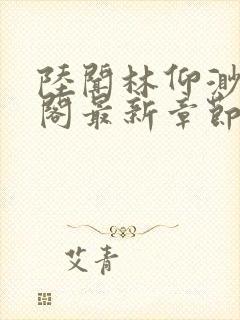 陸聞林仰渺
閣最新章節
艾青